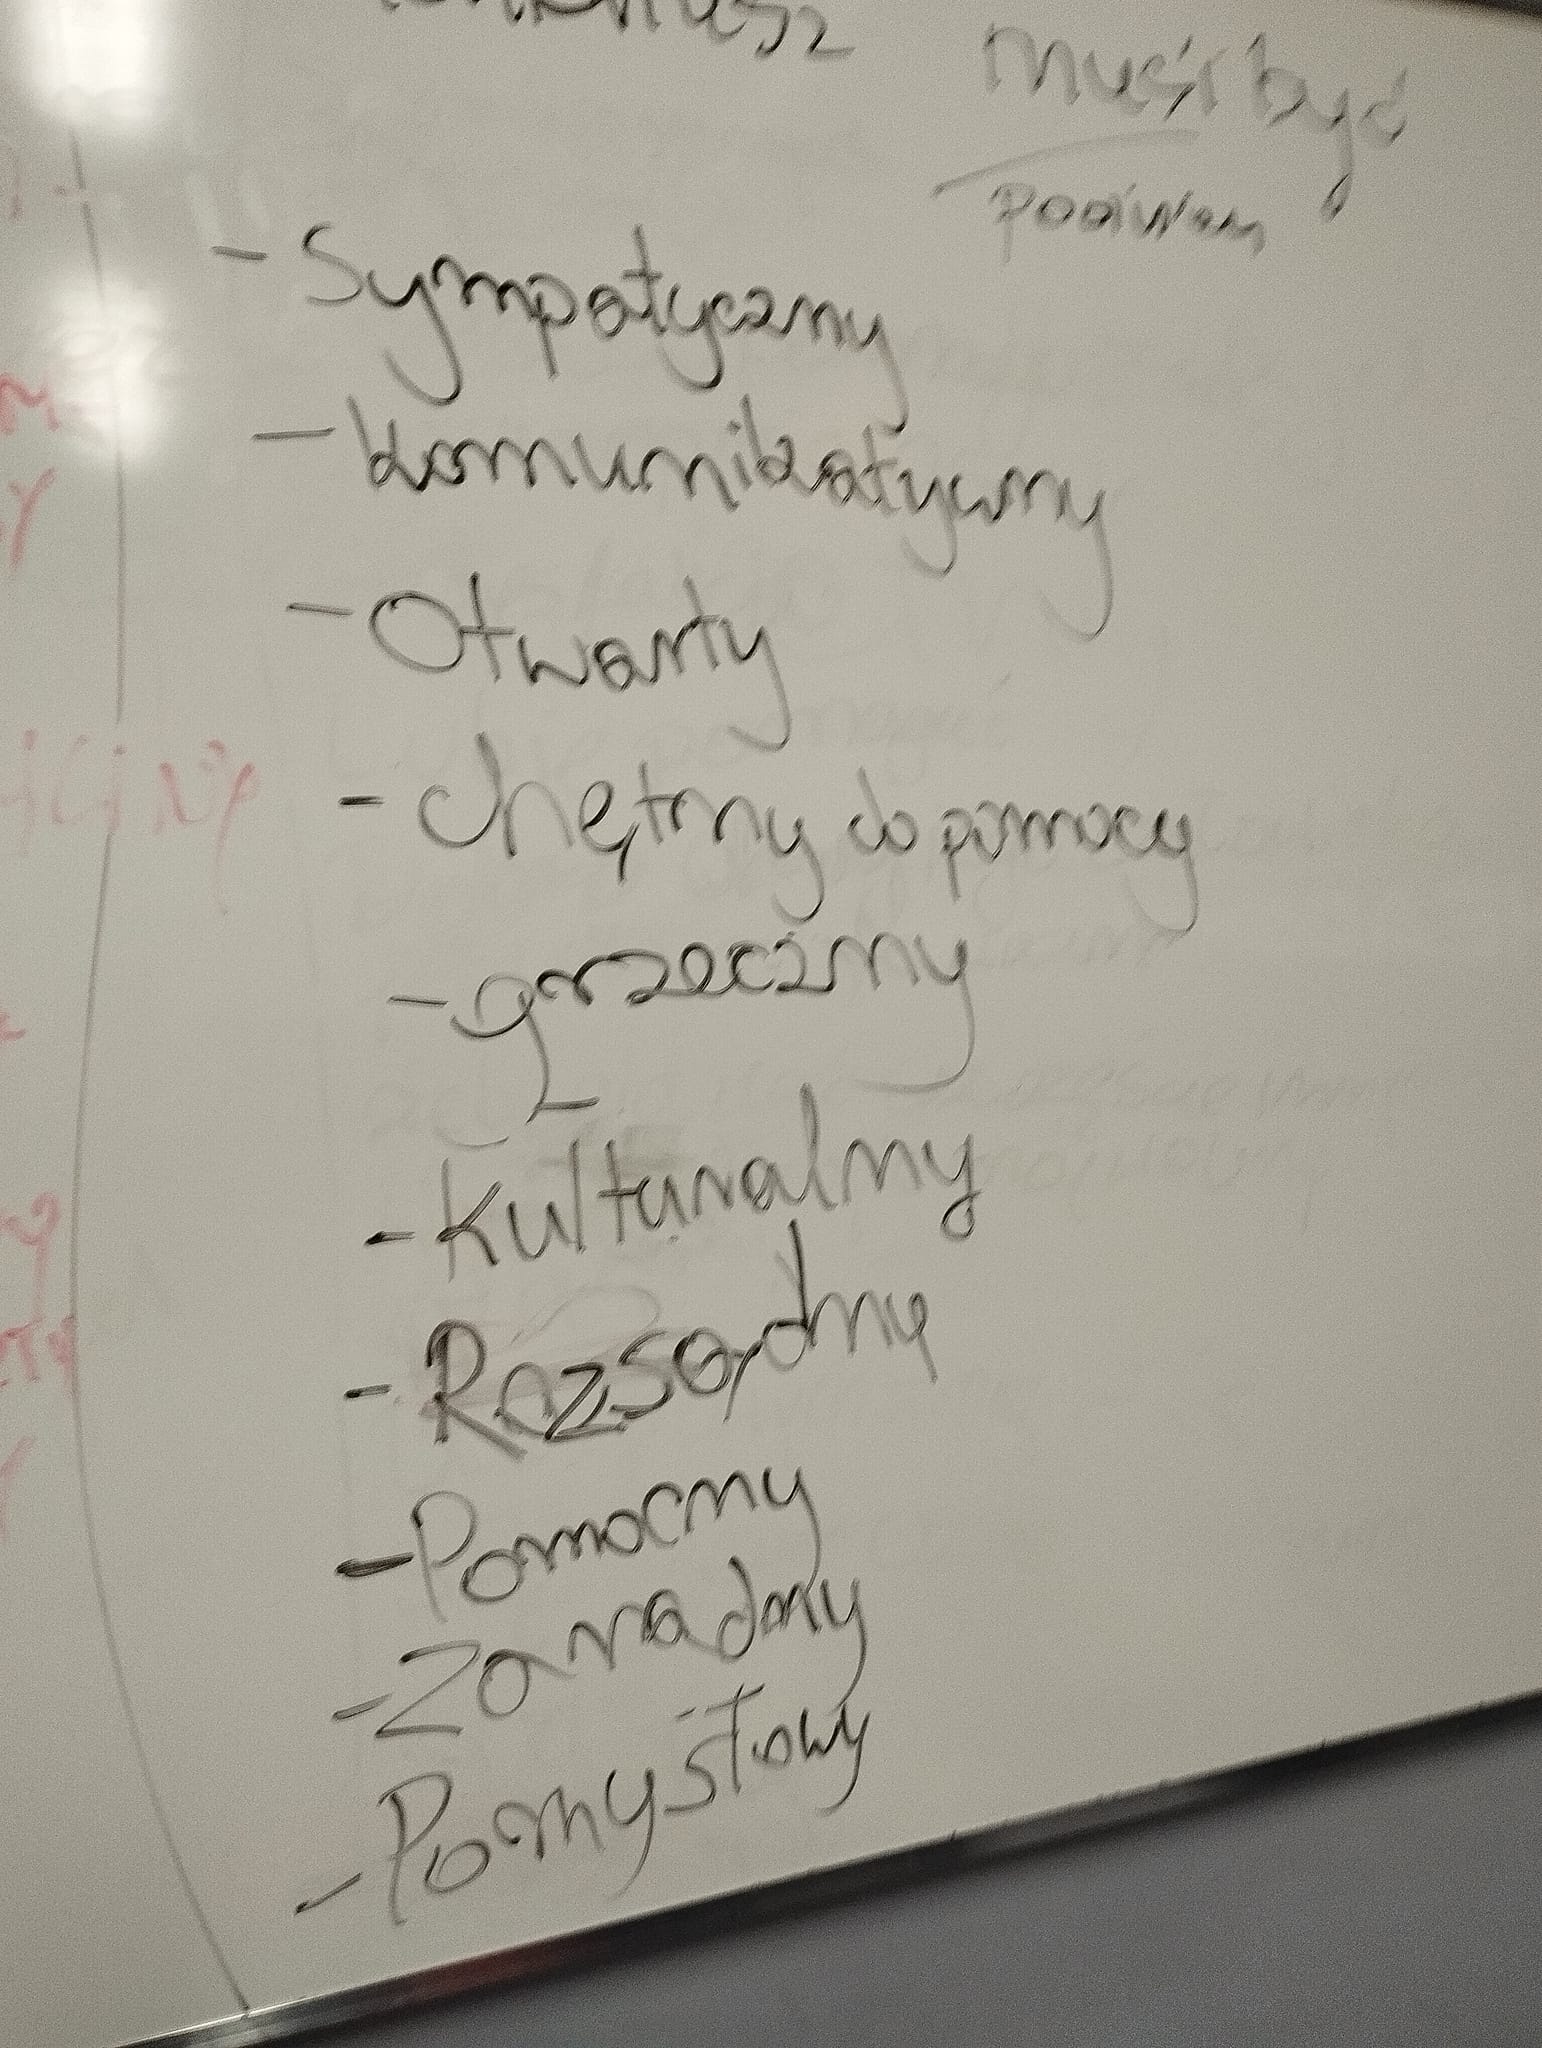 musi być
- Sympatyczny
- komunikatywny
- Otwarty
- chętny do pomocy
- grzeczny
- Kulturalny
- Rozsądny
- Pomocny
- Zaradny
- Pomysłowy